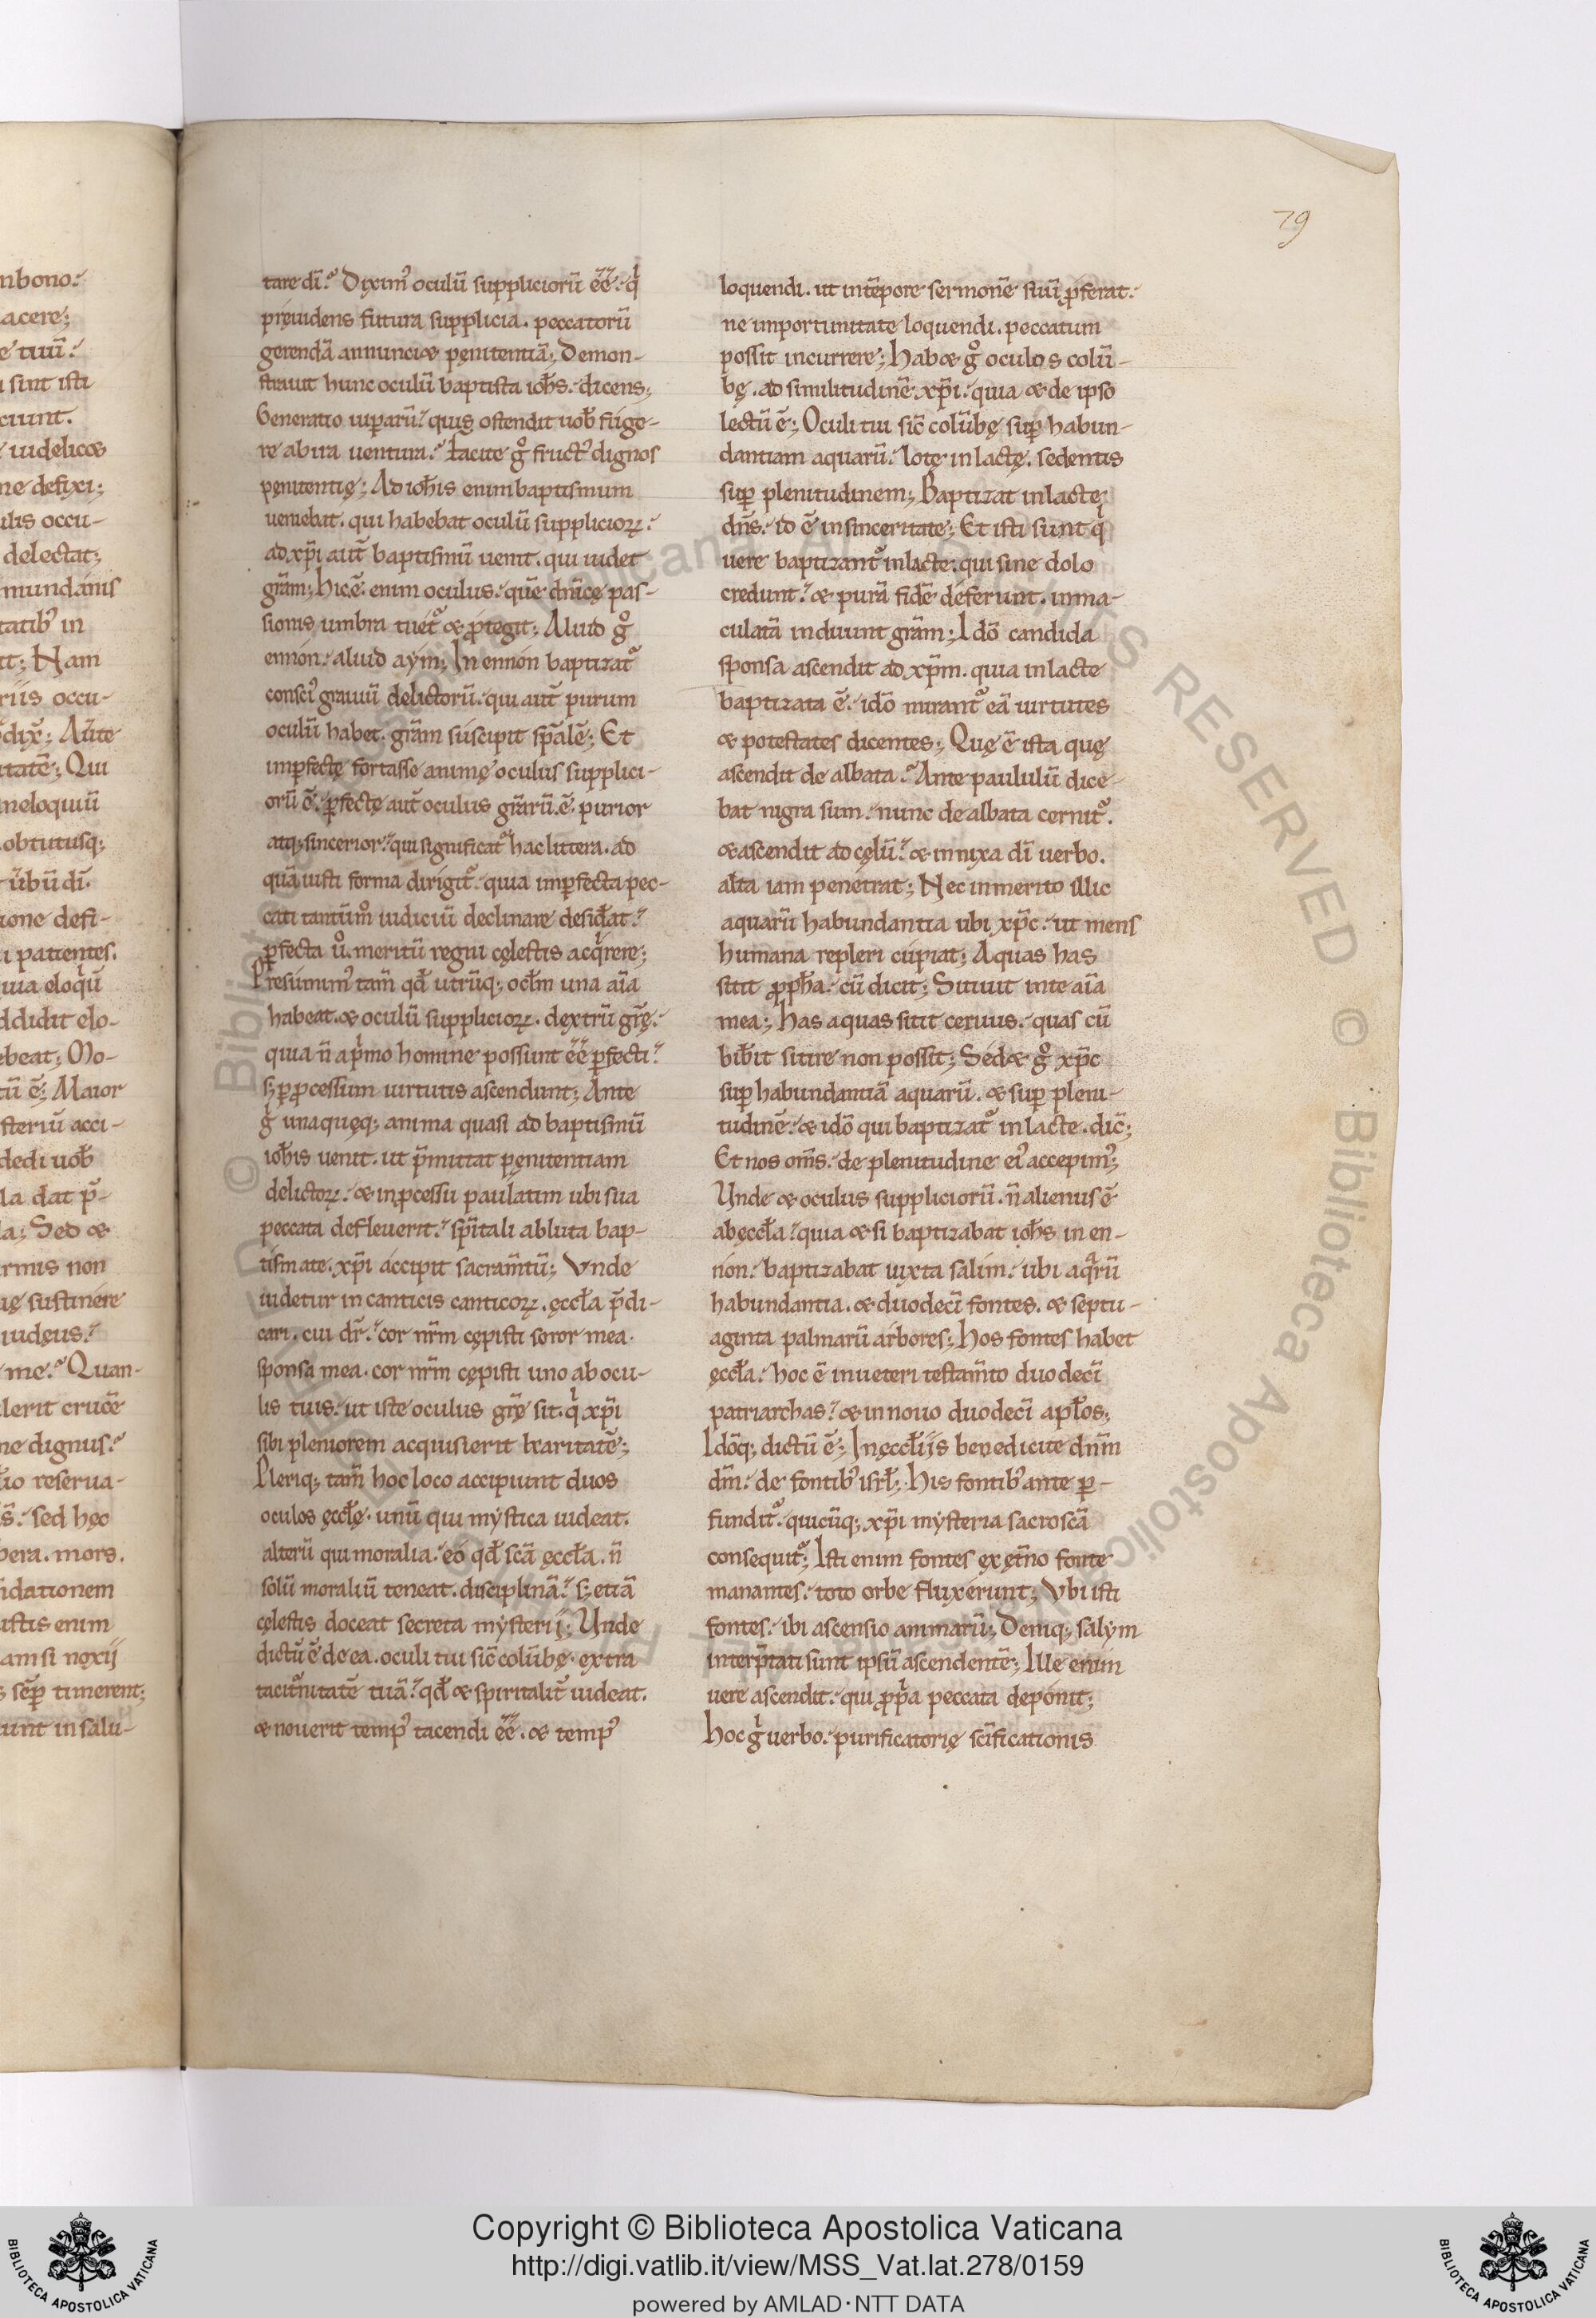 79
nbono.
acere;
e tuū.
sint isti
ciunt.
uidelicet
ne defixi;
ulis occu-
delectat;
mundanis
tatib' in
tt; Nam
riis occu-
dix̄; Ante
itatē; Qui
neloquiū
obtutusq;
ūbū dī.
ione defi-
i patientes.
uia eloqū
ddidit elo-
ebeat; Mo-
tū ē; Maior
steriū acci-
dedi uob̄
la dat p̄-
la; Sed &
rmis non
ę sustinere
iudęus?
me? Quan-
lerit crucē
ne dignus?
io reserua-
sed hęc
pera. mors.
idationem
ustis enim
am si noxij
sēp timerent;
unt in salu-
tare dī? Diximꝰ oculū suppliciorū ēē. qͥ
pręuidens futura supplicia. peccatorū
gerendā annunciet pęnitentiā; Demon-
strauit hunc oculū baptista ioh̄s. dicens;
Generatio uiperarū. quis ostendit uob̄ fuge-
re ab ira uentura? Facite gͦ fructꝰ dignos
penitentię; Ad ioh̄is enim baptismum
ueniebat. qui habebat oculū supplicioꝝ.
ad xp̄i aut̄ baptismū uenit. qui uidet
grām; Hic ē. enim oculus. quē dn̄icę pas-
sionis umbra tuet᷑ & ꝓtegit; Aliud gͦ
ennon. aliud aym; In ennon baptizat᷑
conscīꝰ grauiū delictorū. qui aut̄ purum
oculū habet. grām suscipit sp̄alē; Et
imꝑfectę fortasse animę oculus supplici-
orū ē. ꝑfectę aut̄ oculus grārū.ē. purior
atq; sincerior. qui significat᷑ hac littera. ad
quā iusti forma dirigit᷑. quia imꝑfecta pec-
cati tantūmͦ iudiciū declinare desid̄at.
ꝑfecta uͦ. meritū regni cęlestis acqͥrere;
Presumimꝰ tam̄ qđ utrūq; ocl̄m una aīa
habeat. & oculū supplicioꝝ. dextrū grę̄.
quia n̄ a pͥmo homine possunt ēē ꝑfecti.
s; ꝑ ꝓcessum uirtutis ascendunt; Ante
gͥ unaquęq; anima quasi ad baptismū
ioh̄is uenit. ut p̄mittat pęnitentiam
delictoꝝ. & in ꝓcessu paulatim ubi sua
peccata defleuerit. sp̄itali abluta bap-
tismate. xp̄i accipit sacram̄tū; Vnde
uidetur in canticis canticoꝝ. ęccl̄a p̄di-
cari. cui dr̄. cor nr̄m cępisti soror mea.
sponsa mea. cor nr̄m cępisti uno ab ocu-
lis tuis. ut iste oculus grę̄ sit. qͥ xp̄i
sibi pleniorem acquisierit karitatē;
Pleriq; tam̄ hoc loco accipiunt duos
oculos ęccl̄ę. unū qui mystica uideat.
alterū qui moralia. eo qđ scā ęccl̄a. n̄
solū moraliū teneat. disciplinā. s; etiā
cęlestis doceat secreta mysterij; Unde
dictū ē de ea. oculi tui sic̄ colūbę. extra
taciturnitatē tuā. qđ & spiritalit̄ uideat.
& nouerit tempꝰ tacendi ēē. & tempꝰ
loquendi. ut in tēpore sermonē suū ꝓferat.
ne importunitate loquendi. peccatum
possit incurrere; Habet gͦ oculos colū-
bę. ad similitudinē xp̄i. quia & de ipso
lectū ē; Oculi tui sic̄ colūbę suꝑ habun-
dantiam aquarū. lotę in lactę. sedentis
suꝑ plenitudinem; Baptizat in lactę
dn̄s. id ē in sinceritate; Et isti sunt qͥ
uere baptizant᷑ in lacte. qui sine dolo
credunt. & purā fidē deferunt. inma-
culatā induunt grām; Idō candida
sponsa ascendit ad xp̄m. quia in lacte
baptizata ē. idō mirant᷑ eā uirtutes
& potestates dicentes; Quę ē ista quę
ascendit de albata? Ante paululū dice-
bat nigra sum. nunc de albata cernit᷑.
& ascendit ad cęlū. & innixa dī uerbo.
alta iam penetrat; Nec inmerito illic
aquarū habundantia ubi xp̄c. ut mens
humana repleri cupiat; Aquas has
sitit ꝓph̄a. cū dicit; Sitiuit in te aīa
mea; Has aquas sitit ceruus. quas cū
bib̄it sitire non possit; Sedet gͦ xp̄c
suꝑ habundantiā aquarū. & suꝑ pleni-
tudinē. & idō qui baptizat᷑ in lacte. dic̄;
Et nos om̄s. de plenitudine eiꝰ accepimꝰ;
Unde & oculus suppliciorū. n̄ alienus ē
ab ęccl̄a. quia & si baptizabat ioh̄s in en-
non. baptizabat iuxta salim. ubi aqͣrū
habundantia. & duodecī fontes. & septu-
aginta palmarū arbores; Hos fontes habet
ęccl̄a. hoc ē in ueteri testam̄to duodecī
patriarchas. & in nouo duodecī apl̄os;
Idōq; dictū ē; In ęccl̄ijs benedicite dn̄m
dm̄. de fontibꝰ isrl̄; His fontibꝰ ante ꝑ-
fundit᷑. quicūq; xp̄i mysteria sacroscā
consequit᷑; Isti enim fontes ex ęt̄no fonte
manantes. toto orbe fluxerunt; Vbi isti
fontes. ibi ascensio animarū; Deniq; salym
interp̄tati sunt ipsū ascendentē; Ille enim
uere ascendit. qui ꝓpͥa peccata deponit;
Hoc gͥ uerbo. purificatorię scīficationis
© Biblioteca Apostolica Vaticana
ALL RIGHTS RESERVED
Copyright © Biblioteca Apostolica Vaticana
http://digi.vatlib.it/view/MSS_Vat.lat.278/0159
powered by AMLAD·NTT DATA
BIBLIOTECA APOSTOLICA VATICANA
BIBLIOTECA APOSTOLICA VATICANA